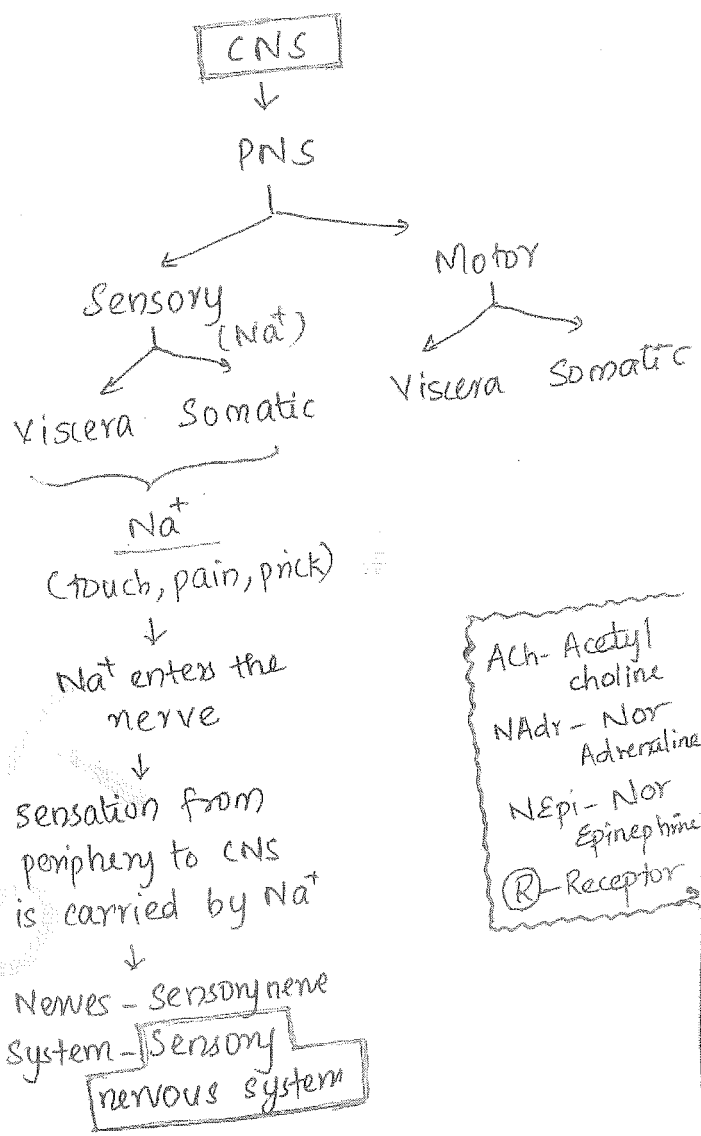 CNS
↓
PNS
Sensory
(Na⁺)
Viscera Somatic
Motor
Viscera Somatic
Na⁺
(touch, pain, prick)
↓
Na⁺ enters the
nerve
↓
sensation from
periphery to CNS
is carried by Na⁺
↓
Nerves - Sensory nerve
System - Sensory
nervous system
ACh - Acetyl
choline
NAdr - Nor
Adrenaline
NEpi - Nor
Epinephrine
Ⓡ - Receptor